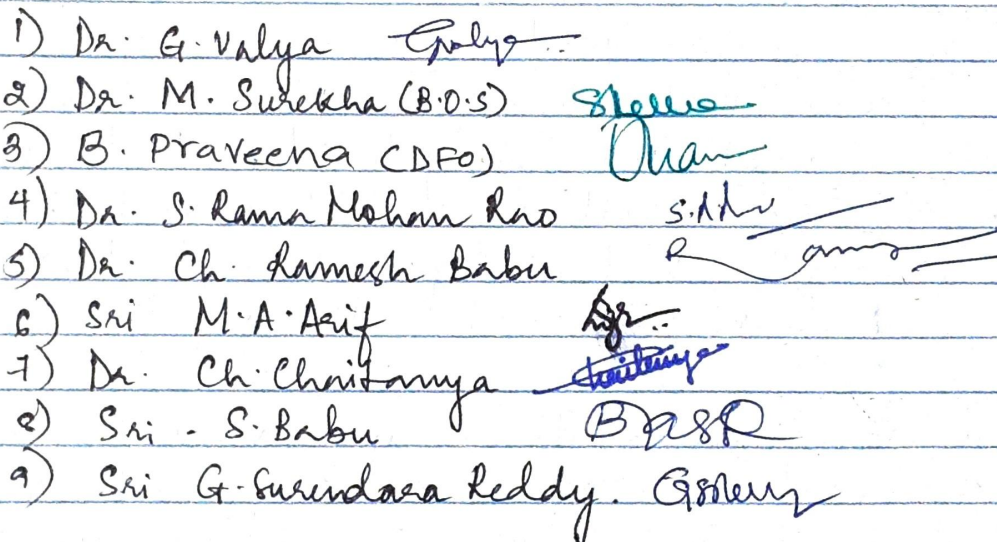 1) Dr. G. Valya
2) Dr. M. Surekha (B.O.S)
3) B. Praveena (DFO)
4) Dr. S. Rama Mohan Rao
5) Dr. Ch. Ramesh Babu
6) Sri M.A. Arif
7) Dr. Ch. Chaitanya Chaitanya
8) Sri - S. Babu
9) Sri G. Surendara Reddy.